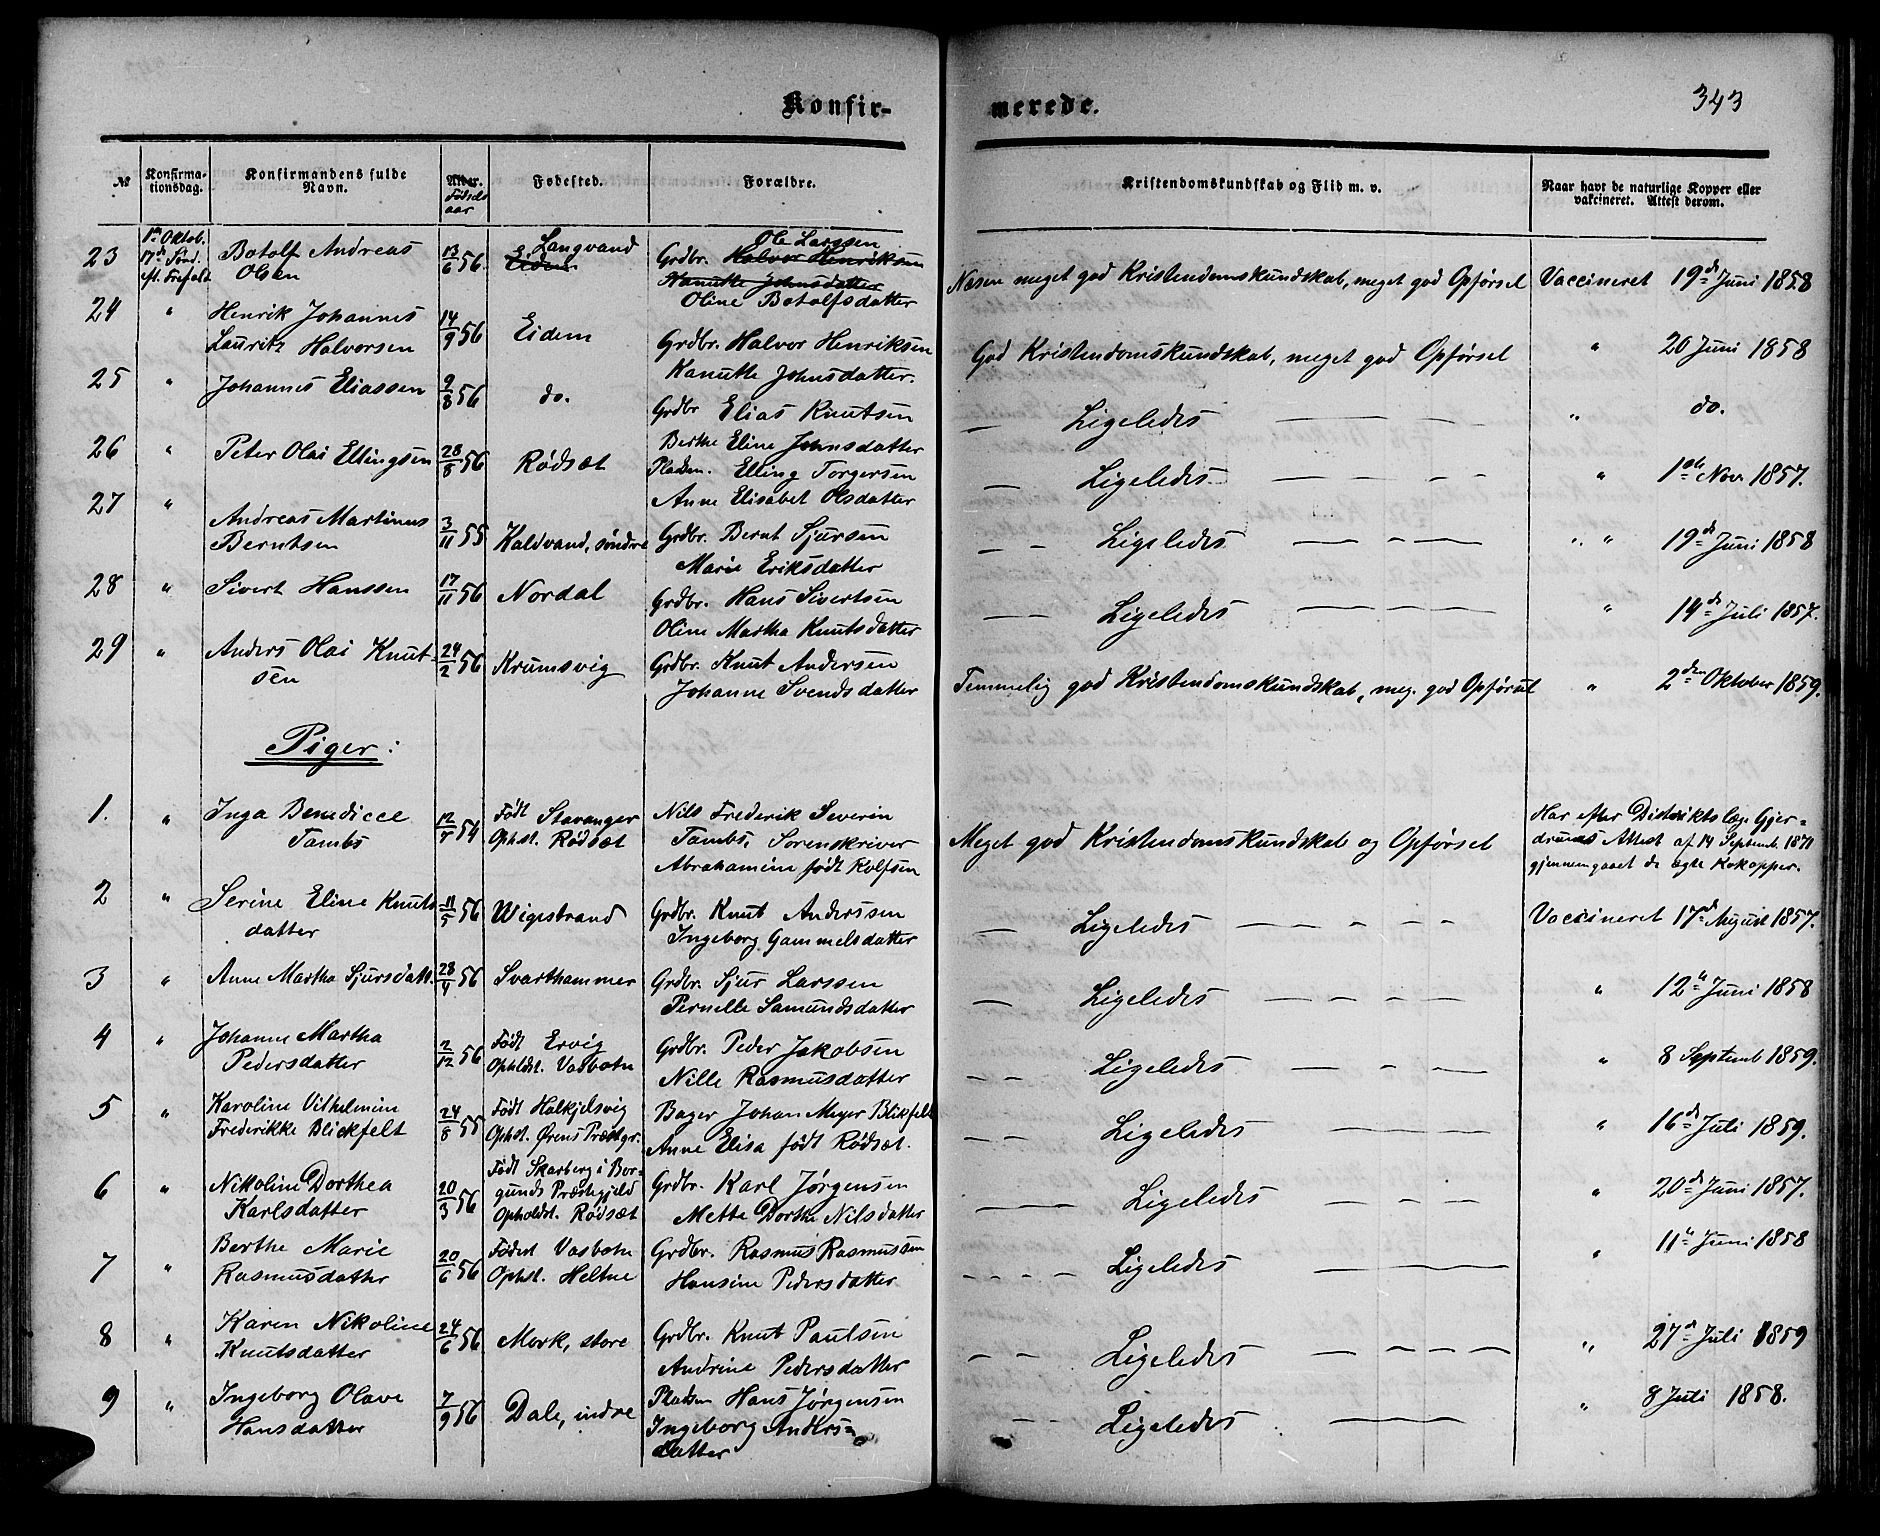 Konfir- merede. 343
№ Konfirma-tionsdag. Konfirmandens fulde Navn. Alder. Fødsels aar Fødested. Forældre. Kristendomskundskab og Flid m. v. Naar havt de naturlige Kopper eller vakcineret. Attest derom.
23 1ste Oktob. 17de Sønd. ft. Trefoldt Botolf Andreas Olsen 13/6 56 Langvand Eidem Grdbr. Ole Larssen Halvor Henriksen Næsen meget god Kristendomskundskab, meget god Opførsel Vaccineret 19de Juni 1858
Kanutte Johnsdatter
Oline Botolfsdatter
24 " Henrik Johannes Lauritz Halvorsen 14/9 56 Eidem Grdbr. Halvor Henriksen God Kristendomskundskab, meget god Opførsel " 20 Juni 1858
Kanutte Johnsdatter.
25 " Johannes Eliassen 9/8 56 do. Grdbr Elias Knutsen — Ligeledes — " do.
Berthe Eline Johnsdatter
26 " Peter Olai Ellingsen 28/8 56 Rødsæt Pladsm. Elling Torgersen — Ligeledes — " 1ste Nov. 1857.
Anne Elisabet Olsdatter
27 " Andreas Martinus Berntsen 3/11 55 Kaldvand, søndre Grdbr. Bernt Sjursen — Ligeledes — " 19de Juni 1858
Marie Eriksdatter
28 " Sivert Hanssen 17/11 56 Nordal Grdbr. Hans Sivertsen — Ligeledes — " 14de Juli 1857.
Oline Martha Knutsdatter
29 " Anders Olai Knutsen 24/2 56 Krumsvig Grdbr. Knut Andersen Temmelig god Kristendomskundskab, meg. god Opførsel " 2den Oktober 1859.
Johanne Svendsdatter
Piger:
1. " Inga Benedicte Tambs 12/7 54 Født Stavanger Ophst. Rødsæt Nils Frederik Severin Tambs, Sorenskriver Meget god Kristendomskundskab og Opførsel Har efter Distriktslæge Gjerdrums Attest af 14 Septemb 1871 gjennemgaaet de ægte Kokopper.
Abrahamine født Rolfsen
2 " Serine Eline Knutsdatter 11/5 56 Wigestrand Grdbr. Knut Anderssen — Ligeledes — Vaccineret 17de August 1857.
Ingeborg Gammelsdatter
3 " Anne Martha Sjursdatt. 28/4 56 Svarthammer Grdbr. Sjur Larssen — Ligeledes — " 12te Juni 1858
Pernelle Samundsdatter
4 " Johanne Martha Pedersdatter 2/12 56 Født Ervig Opholdst. Vasbotn Grdbr. Peder Jakobsen — Ligeledes — " 8 Septemb 1859.
Nille Rasmusdatter
5 " Karoline Vilhelmine Frederikke Blickfelt 24/8 55 Født Halkjelsvig Ophst. Ørens Præstgr. Bager Johan Meyer Blikfelt — Ligeledes — " 16de Juli 1859.
Anne Elisa født Rødsæt.
6 " Nikoline Dorthea Karlsdatter 20/3 56 Født Skarberg i Borgunds Præstegjeld Opholdst. Rødsæt Grdbr. Karl Jørgensen — Ligeledes — " 20de Juni 1857.
Mette Dorthe Nilsdatter
7 " Berthe Marie Rasmusdatter 20/6 56 Født Vasbotn Ophst. Heltne Grdbr. Rasmus Rasmussen — Ligeledes — " 11te Juni 1858
Hansine Pedersdatter
8 " Karen Nikoline Knutsdatter 24/6 56 Mork, store Grdbr. Knut Paulsen — Ligeledes — " 27de Juli 1859
Andrine Pedersdatter
9 " Ingeborg Olave Hansdatter 7/9 56 Dale, indre Pladsm Hans Jørgensen — Ligeledes — " 8 Juli 1858.
Ingeborg Andersdatter